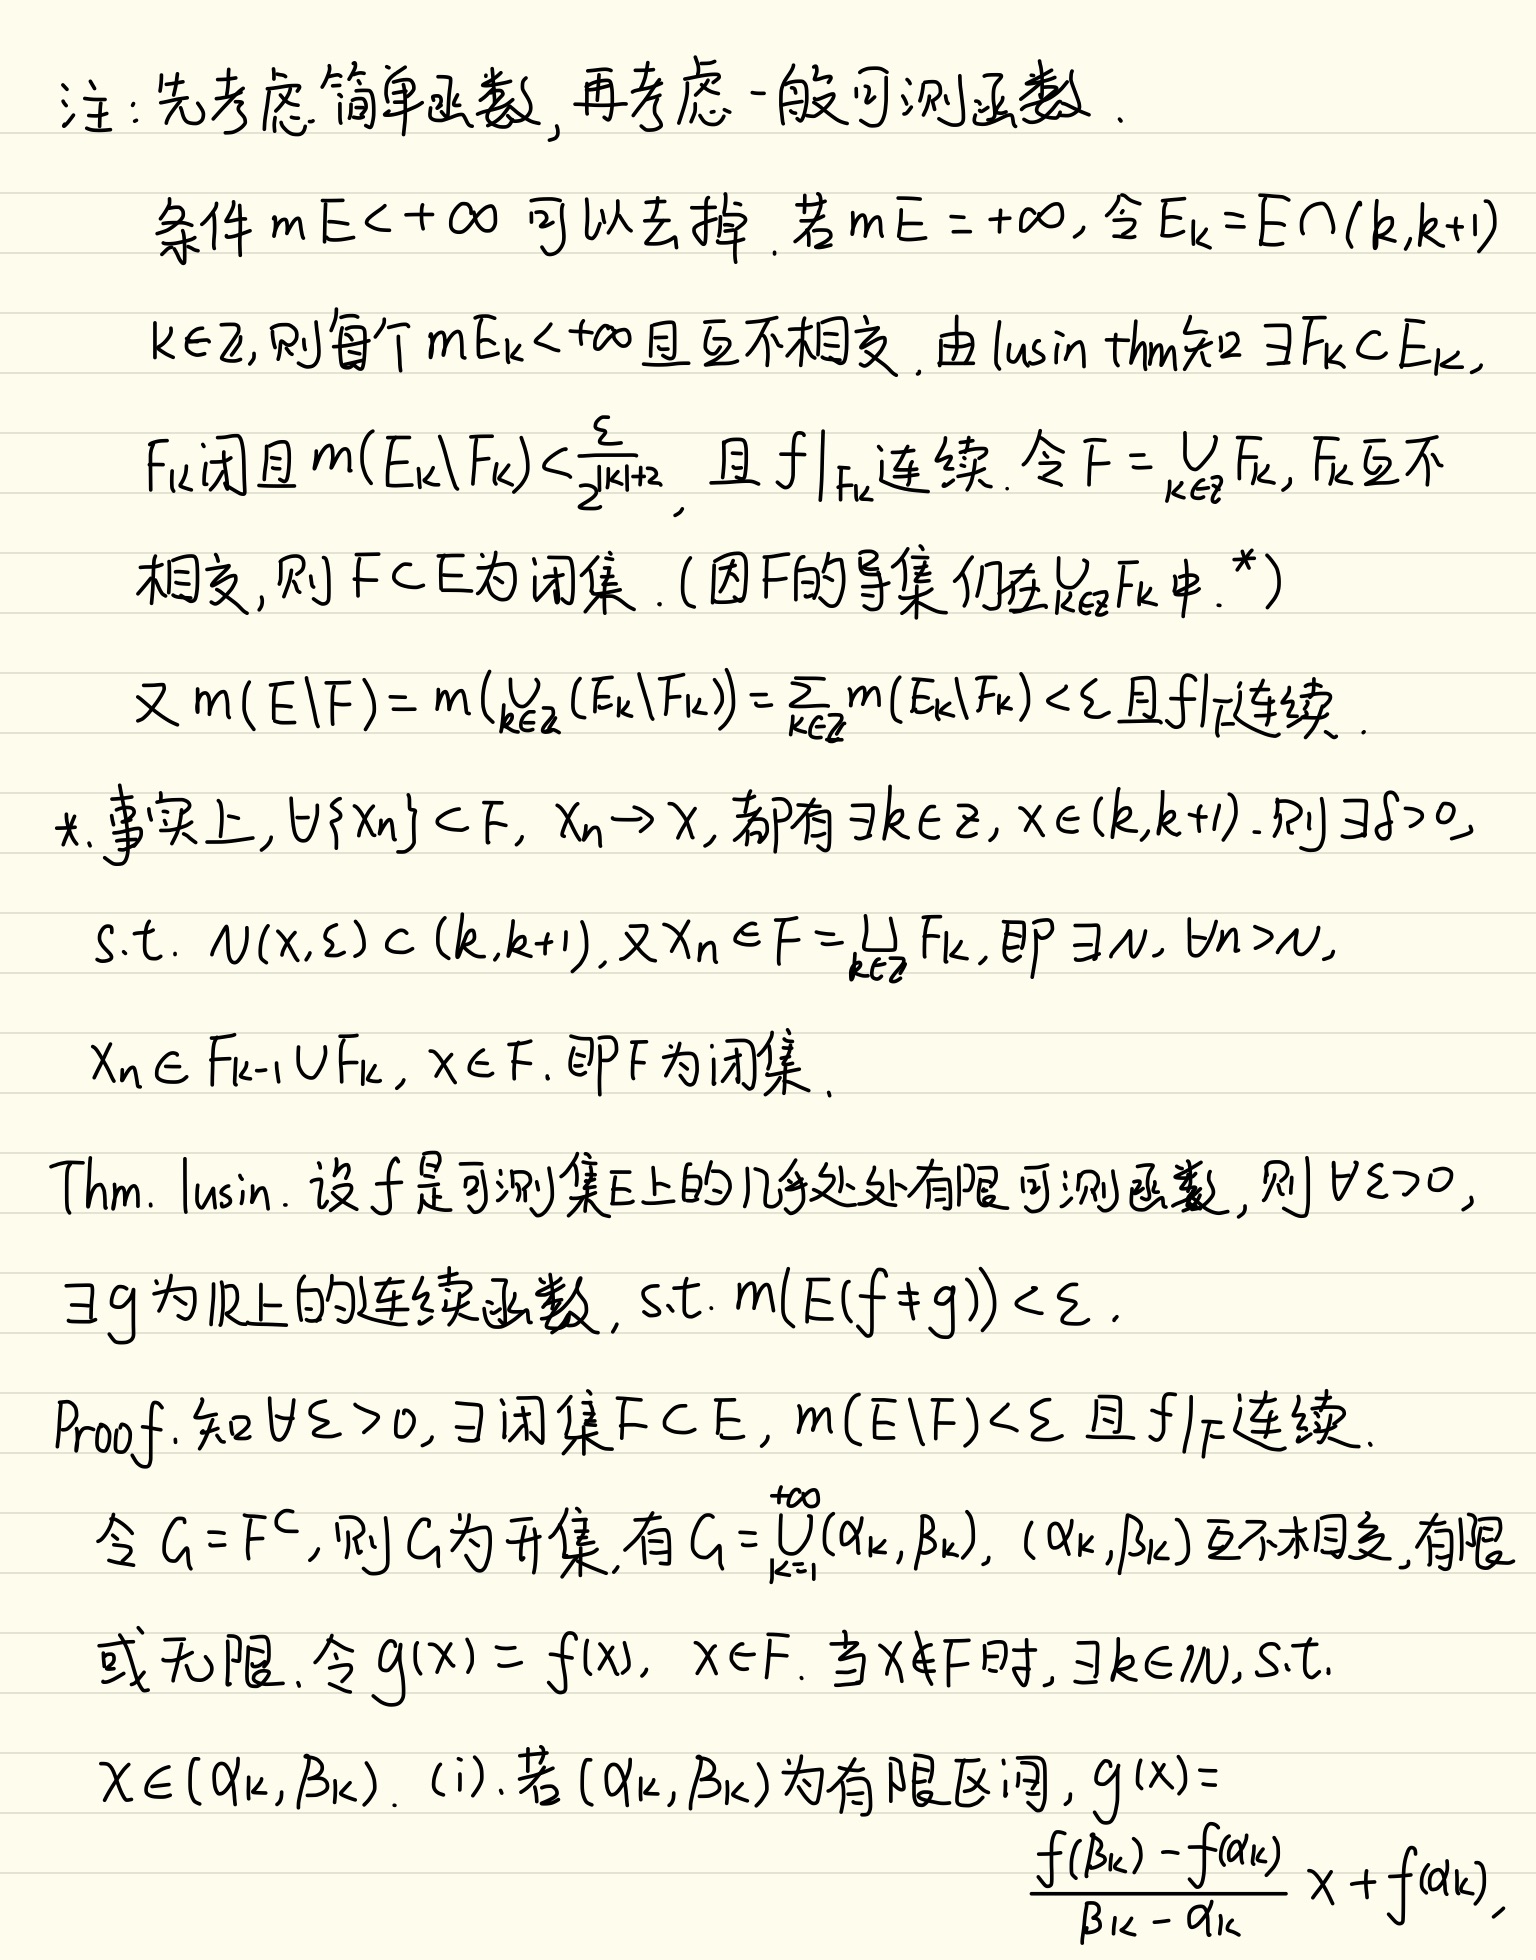 注:先考虑简单函数,再考虑一般可测函数.
条件 mE<+∞ 可以去掉.若 mE=+∞,令 E_k=E∩(k,k+1)
k∈ℤ,则每个 mE_k<+∞且互不相交.由lusin thm知∃F_k⊂E_k,
F_k闭且 m(E_k\F_k)<ε/2^{|k|+2}, 且 f|_{F_k}连续.令 F=∪_{k∈ℤ} F_k, F_k互不
相交,则 F⊂E为闭集.(因F的导集仍在∪_{k∈ℤ}F_k中.*)
又 m(E\F)=m(∪_{k∈ℤ}(E_k\F_k))=∑_{k∈ℤ} m(E_k\F_k)<ε且f|_F连续.
*.事实上,∀{x_n}⊂F, x_n→x,都有∃k∈ℤ, x∈(k,k+1).则∃δ>0,
s.t. N(x,ε)⊂(k,k+1),又x_n∈F=∪_{k∈ℤ} F_k,即∃N,∀n>N,
x_n∈F_{k-1}∪F_k, x∈F.即F为闭集.
Thm. lusin.设f是可测集E上的几乎处处有限可测函数,则∀ε>0,
∃g为ℝ上的连续函数, s.t. m(E(f≠g))<ε.
Proof.知∀ε>0,∃闭集F⊂E, m(E\F)<ε 且 f|_F连续.
令 G=F^c,则G为开集,有 G=∪_{k=1}^{+∞}(α_k,β_k), (α_k,β_k)互不相交,有限
或无限.令 g(x)=f(x), x∈F.当x∉F时,∃k∈ℕ,s.t.
x∈(α_k,β_k). (i).若(α_k,β_k)为有限区间, g(x)=
\frac{f(β_k)-f(α_k)}{β_k-α_k} x+f(α_k),